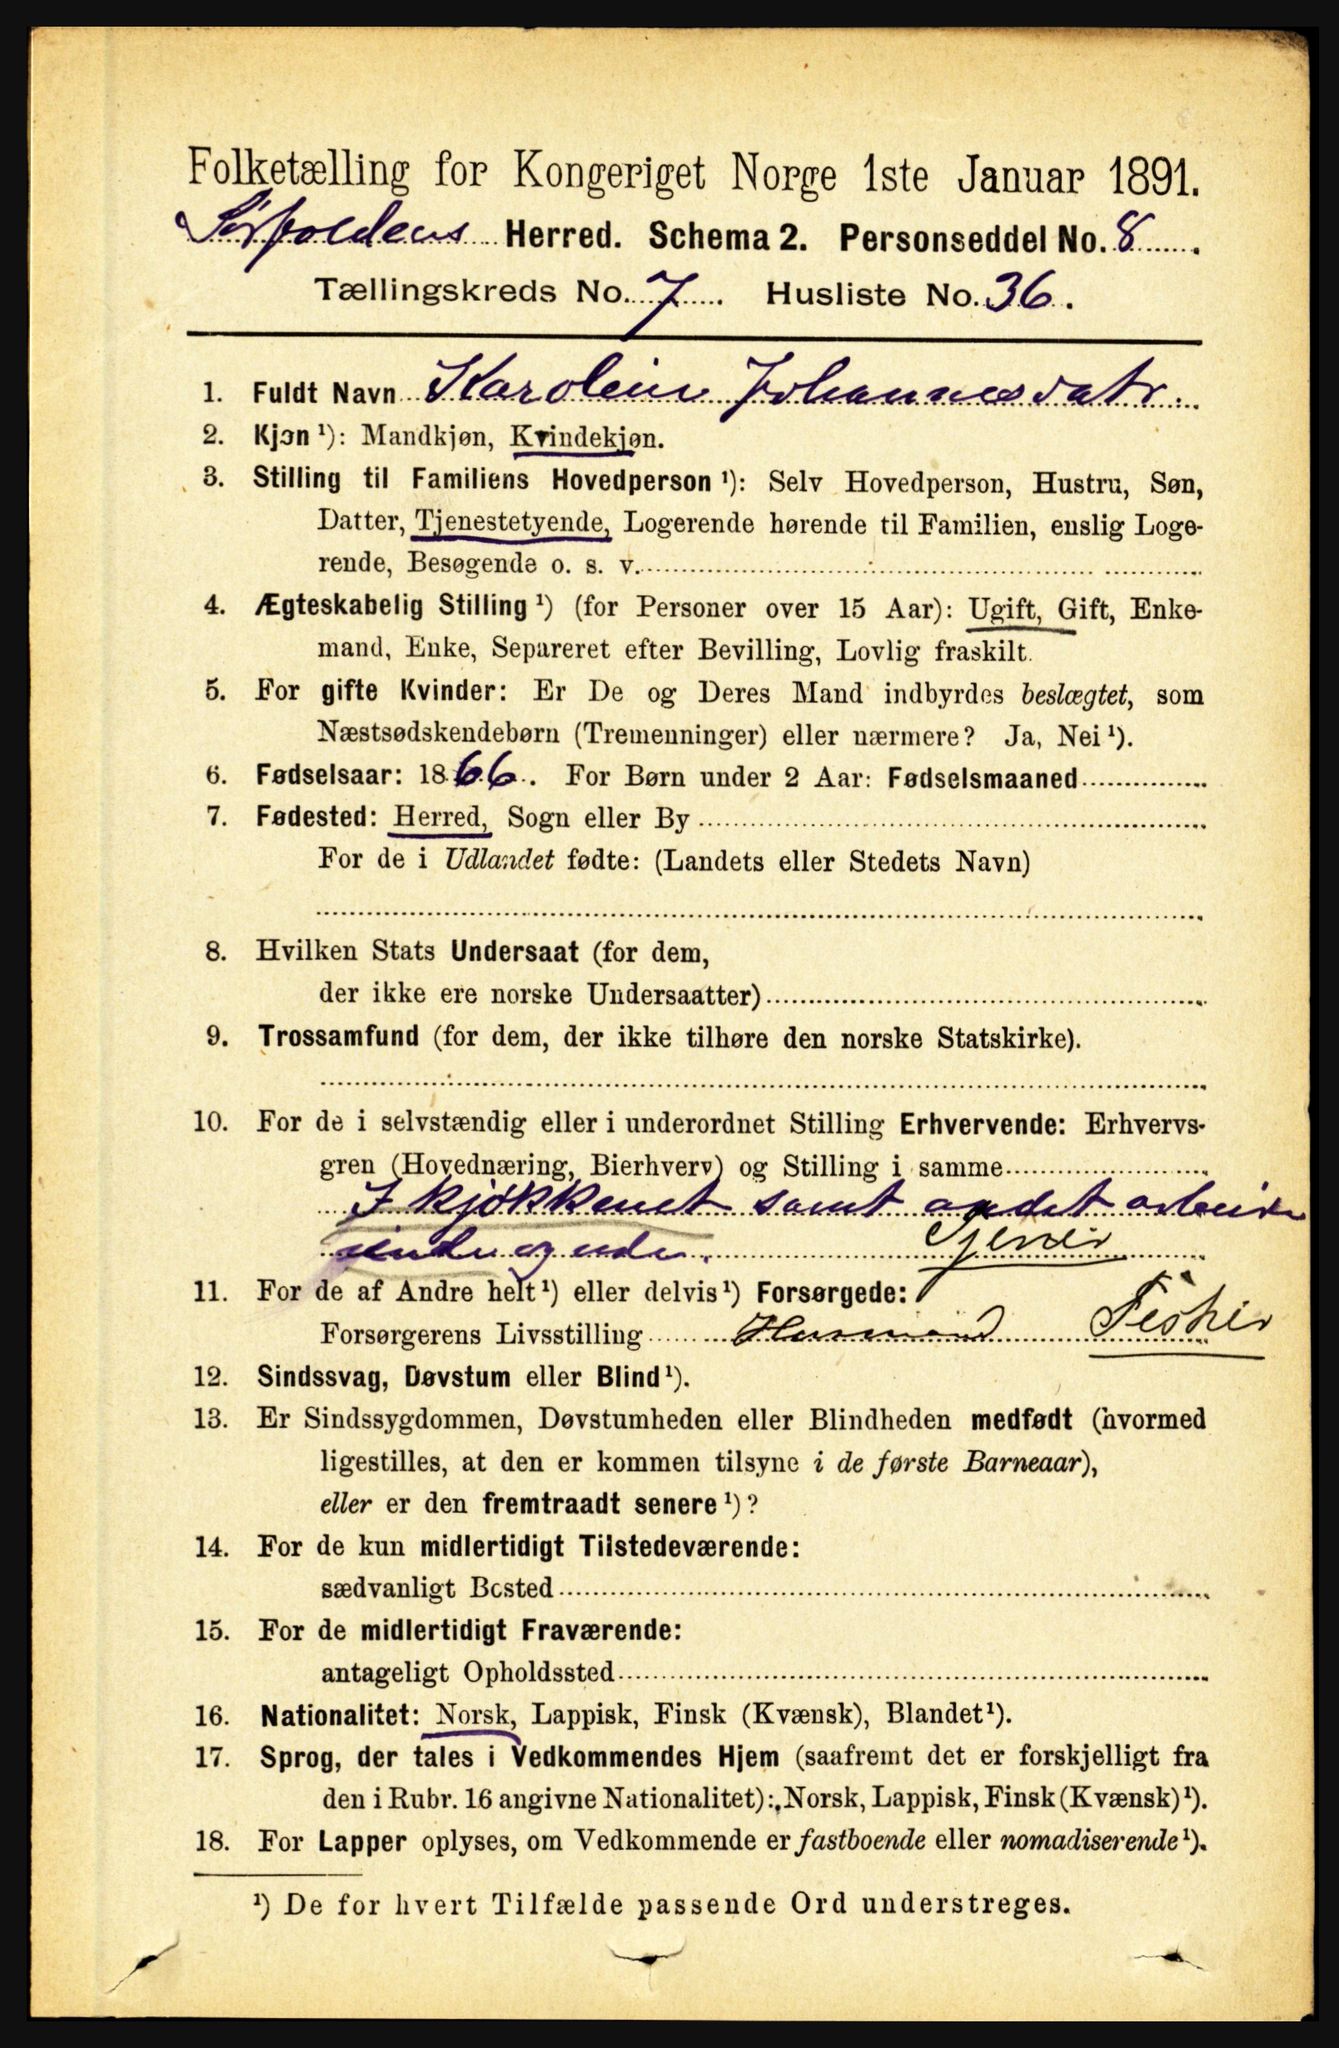 Folketælling for Kongeriget Norge 1ste Januar 1891.
Sørfoldens Herred. Schema 2. Personseddel No. 8.
Tællingskreds No. 7. Husliste No. 36.
1. Fuldt Navn Karoleine Johannesdatr.
2. Kjøn ¹): Mandkjøn, Kvindekjøn.
3. Stilling til Familiens Hovedperson ¹): Selv Hovedperson, Hustru, Søn,
Datter, Tjenestetyende, Logerende hørende til Familien, enslig Loge-
rende, Besøgende o. s. v.
4. Ægteskabelig Stilling ¹) (for Personer over 15 Aar): Ugift, Gift, Enke-
mand, Enke, Separeret efter Bevilling, Lovlig fraskilt.
5. For gifte Kvinder: Er De og Deres Mand indbyrdes beslægtet, som
Næstsødskendebørn (Tremenninger) eller nærmere? Ja, Nei ¹).
6. Fødselsaar: 1866. For Børn under 2 Aar: Fødselsmaaned
7. Fødested: Herred, Sogn eller By
For de i Udlandet fødte: (Landets eller Stedets Navn)
8. Hvilken Stats Undersaat (for dem,
der ikke ere norske Undersaatter)
9. Trossamfund (for dem, der ikke tilhøre den norske Statskirke).
10. For de i selvstændig eller i underordnet Stilling Erhvervende: Erhvervs-
gren (Hovednæring, Bierhverv) og Stilling i samme
I kjøkkenet samt andet arbeide
inde og ude. Tjener
11. For de af Andre helt ¹) eller delvis ¹) Forsørgede:
Forsørgerens Livsstilling Husmand Fisker
12. Sindssvag, Døvstum eller Blind ¹).
13. Er Sindssygdommen, Døvstumheden eller Blindheden medfødt (hvormed
ligestilles, at den er kommen tilsyne i de første Barneaar),
eller er den fremtraadt senere ¹)?
14. For de kun midlertidigt Tilstedeværende:
sædvanligt Bosted
15. For de midlertidigt Fraværende:
antageligt Opholdssted
16. Nationalitet: Norsk, Lappisk, Finsk (Kvænsk), Blandet ¹).
17. Sprog, der tales i Vedkommendes Hjem (saafremt det er forskjelligt fra
den i Rubr. 16 angivne Nationalitet): Norsk, Lappisk, Finsk (Kvænsk) ¹).
18. For Lapper oplyses, om Vedkommende er fastboende eller nomadiserende ¹).
¹) De for hvert Tilfælde passende Ord understreges.